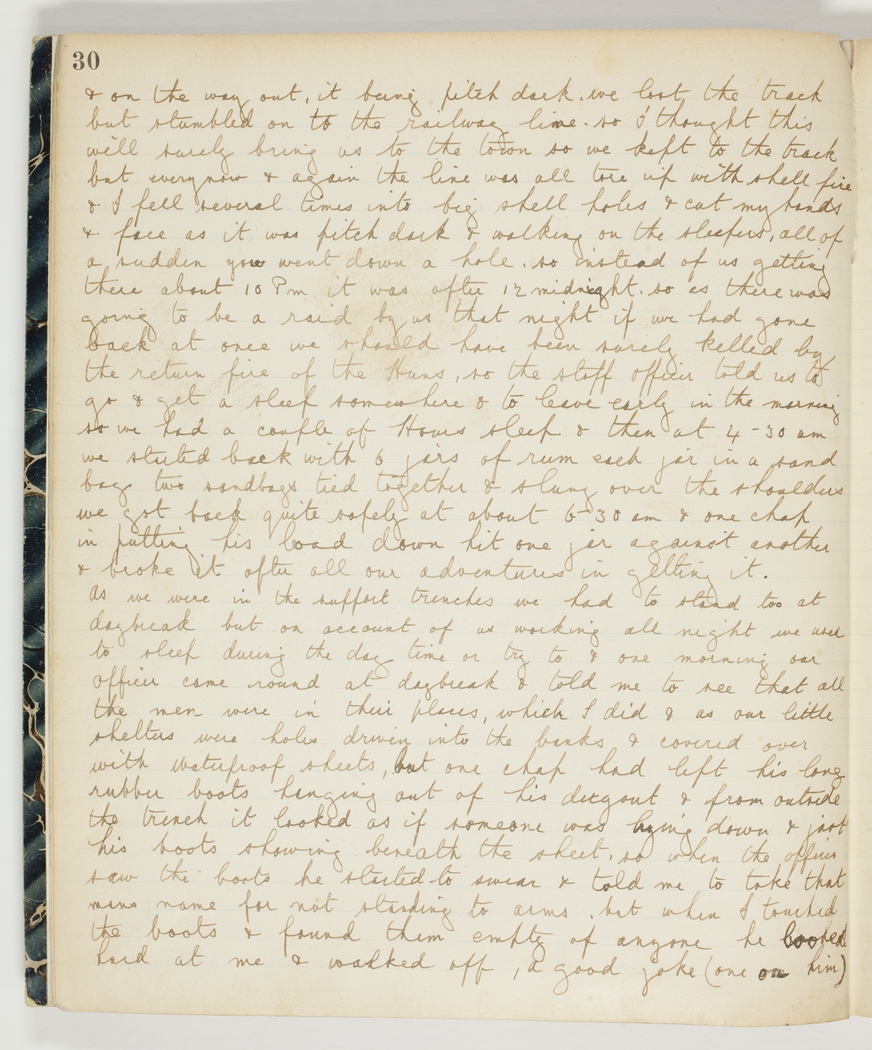 30
& on the way out, it being pitch dark. we lost the track
but stumbled on to the railway line. so I thought this
will surely bring us to the town so we kept to the track
but everynow & again the line was all tore up with shell fire
& I fell several times into big shell holes & cut my hands
& face as it was pitch dark & walking on the sleepers, all of
a sudden you went down a hole. so instead of us getting
there about 10 Pm it was after 12 midnight. so as there was
going to be a raid by us that night if we had gone
back at once we should have been surely killed by
the return fire of the Huns, so the staff officer told us to
go & get a sleep somewhere & to leave early in the morning
so we had a couple of Hours sleep & then at 4-30 am
we started back with 6 jars of rum each jar in a sand
bag two sandbags tied together & slung over the shoulders
we got back quite safely at about 6-30 am & one chap
in putting his load down hit one jar against another
& broke it after all our adventures in getting it.
As we were in the support trenches we had to stand too at
daybreak but on account of us working all night we used
to sleep during the day time or try to & one morning our
officer came round at daybreak & told me to see that all
the men were in their places, which I did & as our little
shelters were holes driven into the banks & covered over
with waterproof sheets, but one chap had left his long
rubber boots hanging out of his dugout & from outside
the trench it looked as if someone was lying down & just
his boots showing beneath the sheet. so when the officer
saw the boots he started to swear & told me to take that
mans name for not standing to arms. but when I touched
the boots & found them empty of anyone he looked
hard at me & walked off, a good joke (one on him)